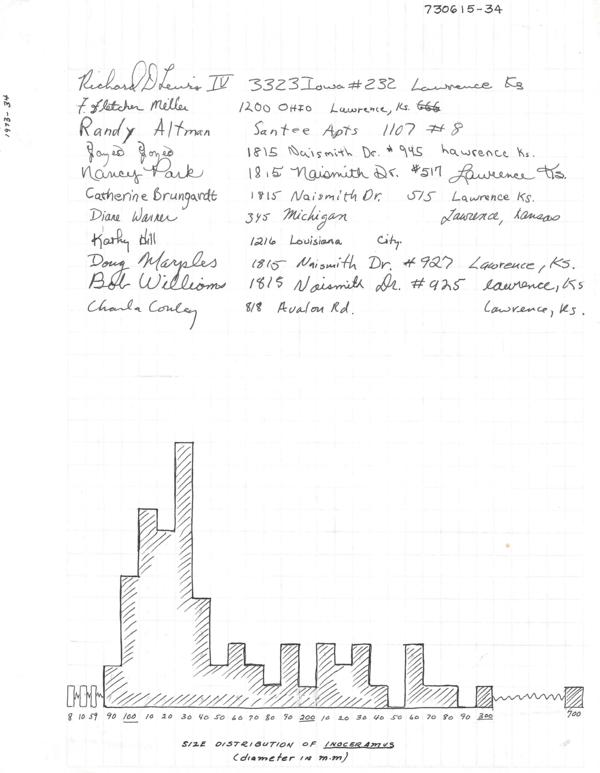 730615-34
1973-34
Richard D Lewis IV 3323 Iowa #232 Lawrence Ks
F. Fletcher Meller 1200 OHIO Lawrence, Ks.
Randy Altman Santee Apts 1107 #8
1815 Naismith Dr. #945 Lawrence Ks.
Nancy Park 1815 Naismith Dr. #517 Lawrence Ks.
Catherine Brungardt 1815 Naismith Dr. 515 Lawrence Ks.
Diane Warner 345 Michigan Lawrence, Kansas
Kathy Hill 1216 Louisiana City.
Doug Marples 1815 Naismith Dr. #927 Lawrence, KS.
Bob Williams 1815 Naismith Dr. #925 Lawrence, Ks
Charla Conley 818 Avalon Rd. Lawrence, Ks.
8 10 59 90 100 10 20 30 40 50 60 70 80 90 200 10 20 30 40 50 60 70 80 90 300 700
SIZE DISTRIBUTION OF INOCERAMUS
(diameter IN m.m)